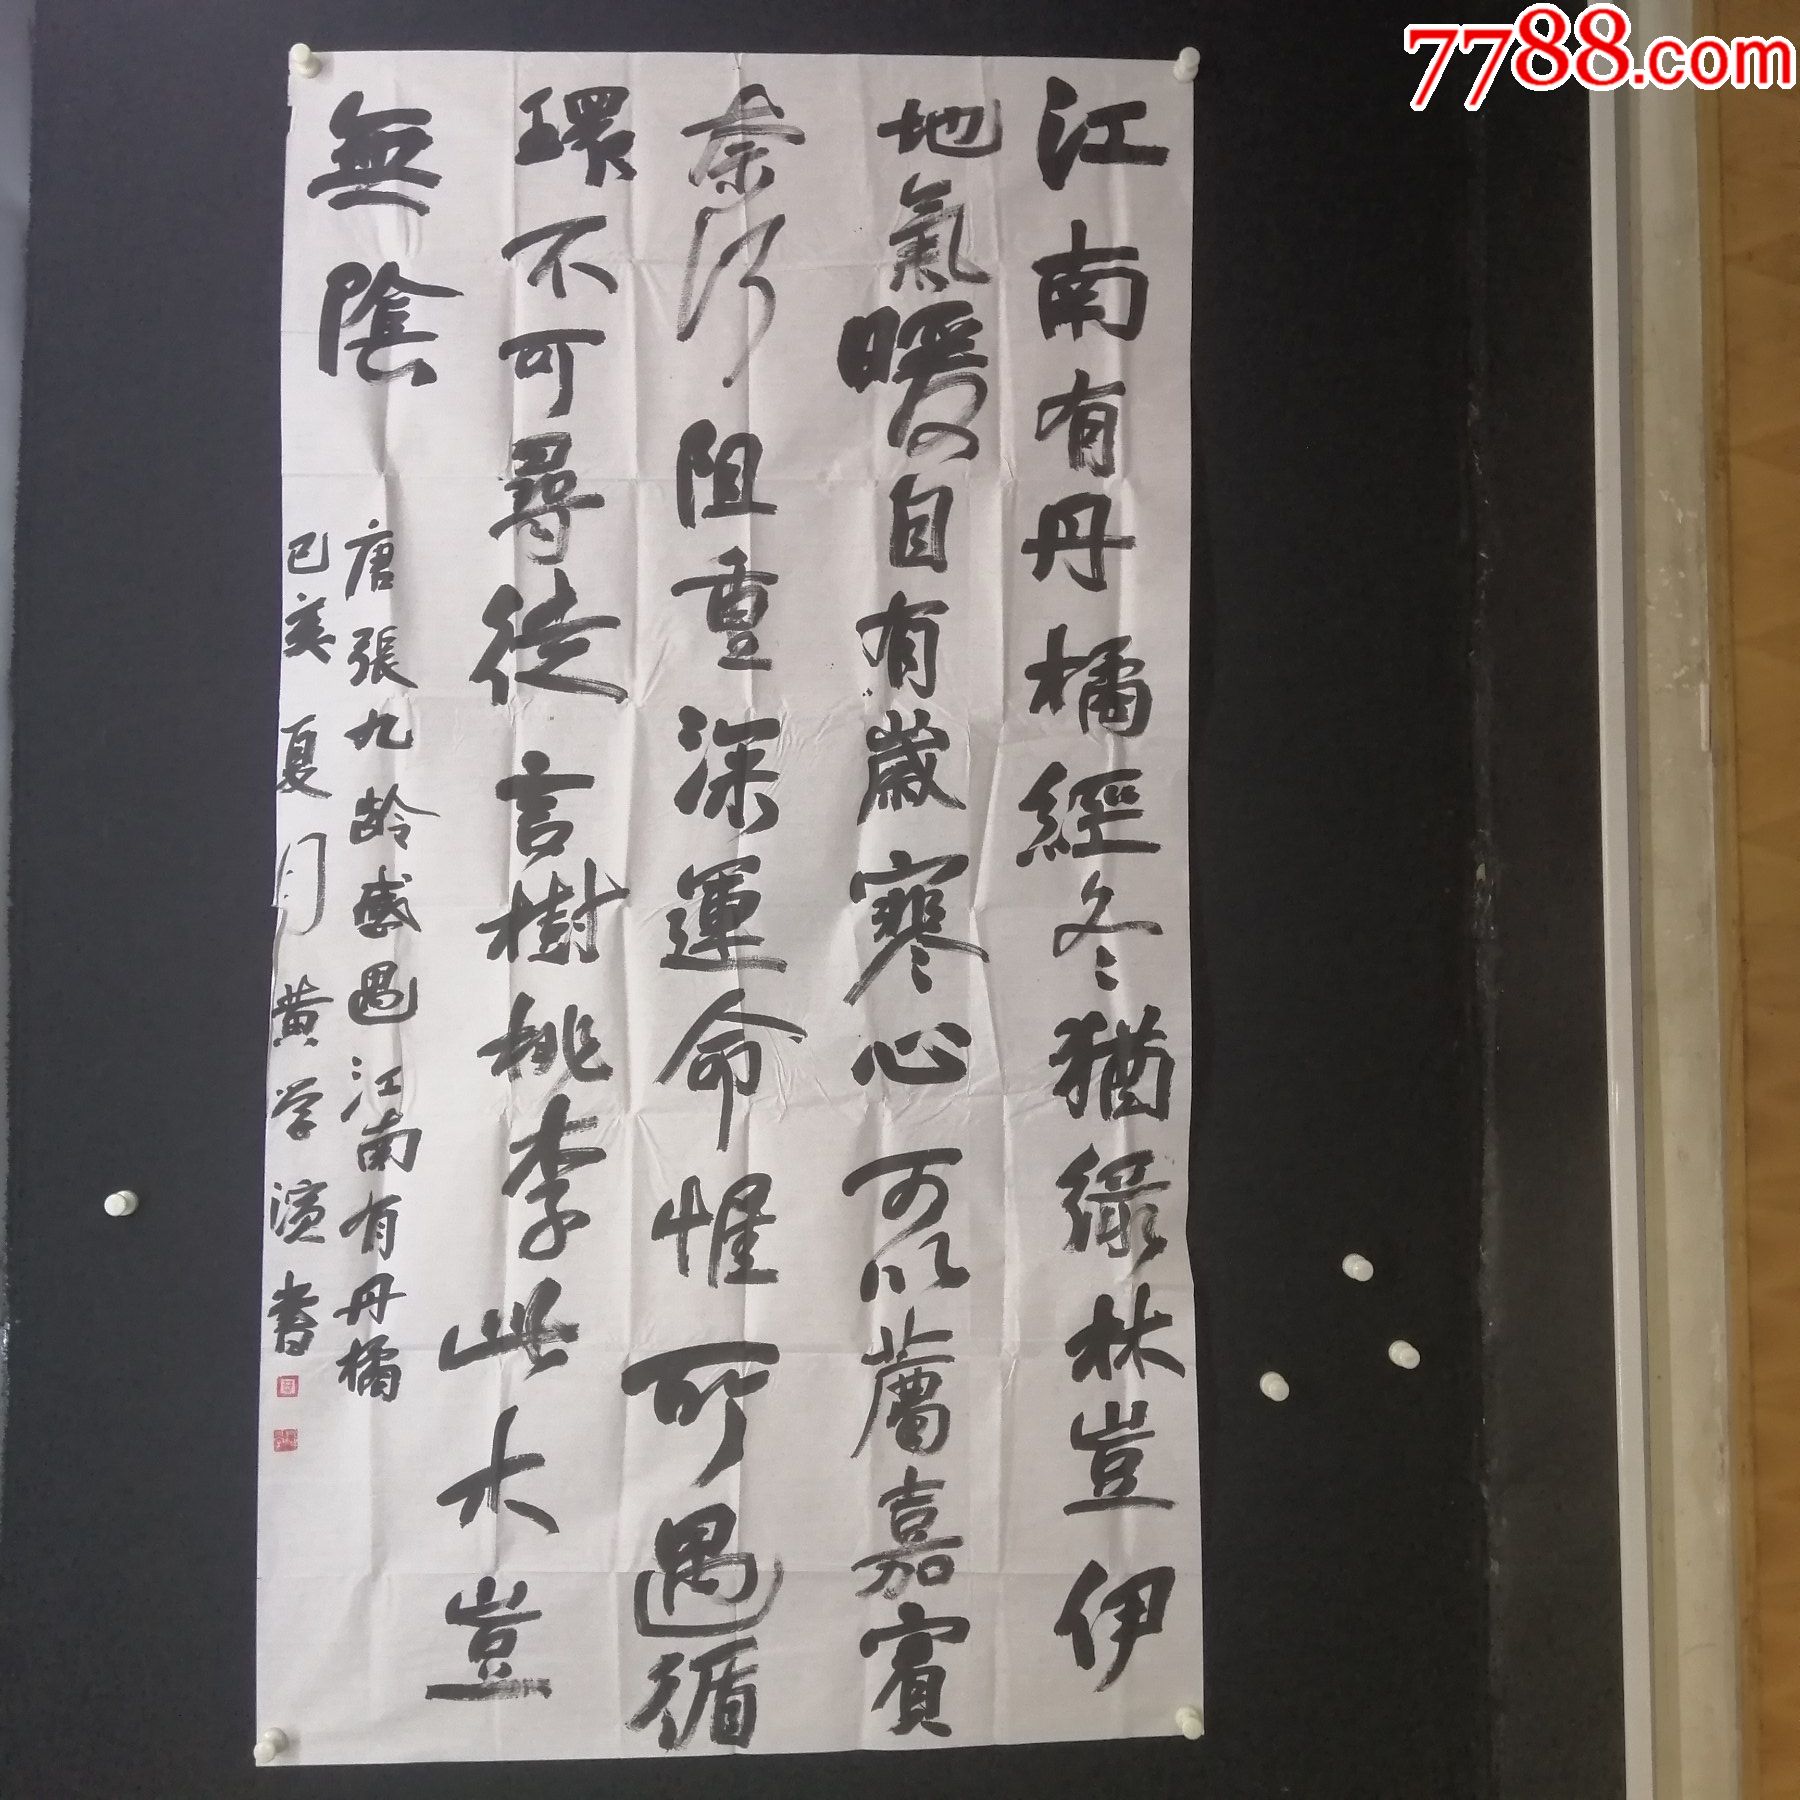 江南有丹橘經冬猶綠林豈伊
地氣暖自有歲寒心可以薦嘉賓
奈何阻重深運命惟所遇循
環不可尋徒言樹桃李此木豈
無陰
唐張九龄感遇江南有丹橘
己亥夏月黄学演書
7788.com